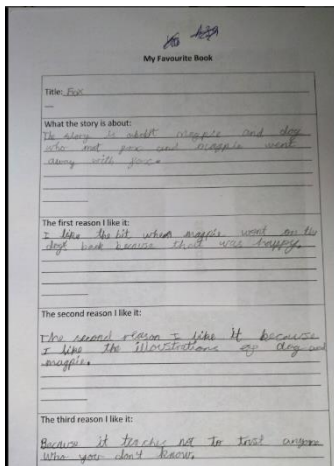 My Favourite Book
Title: Fox
What the story is about:
The story is about magpie and dog
who met fox and magpie went
away with fox.
The first reason I like it:
I like the bit when magpie went on the
dogs back because that was happy.
The second reason I like it:
The second reason I like it because
I like the illustrations of dog and
magpie.
The third reason I like it:
Because it teaches not to trust anyone
who you don't know.